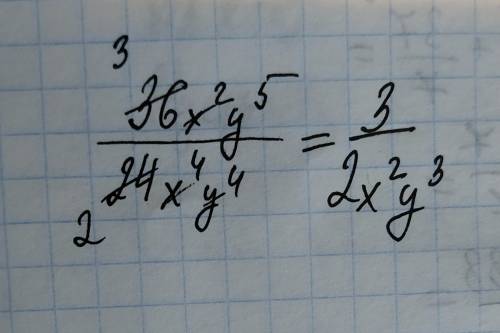 3
36x²y⁵ / 24x⁴y⁴ = 3 / 2x²y³
2